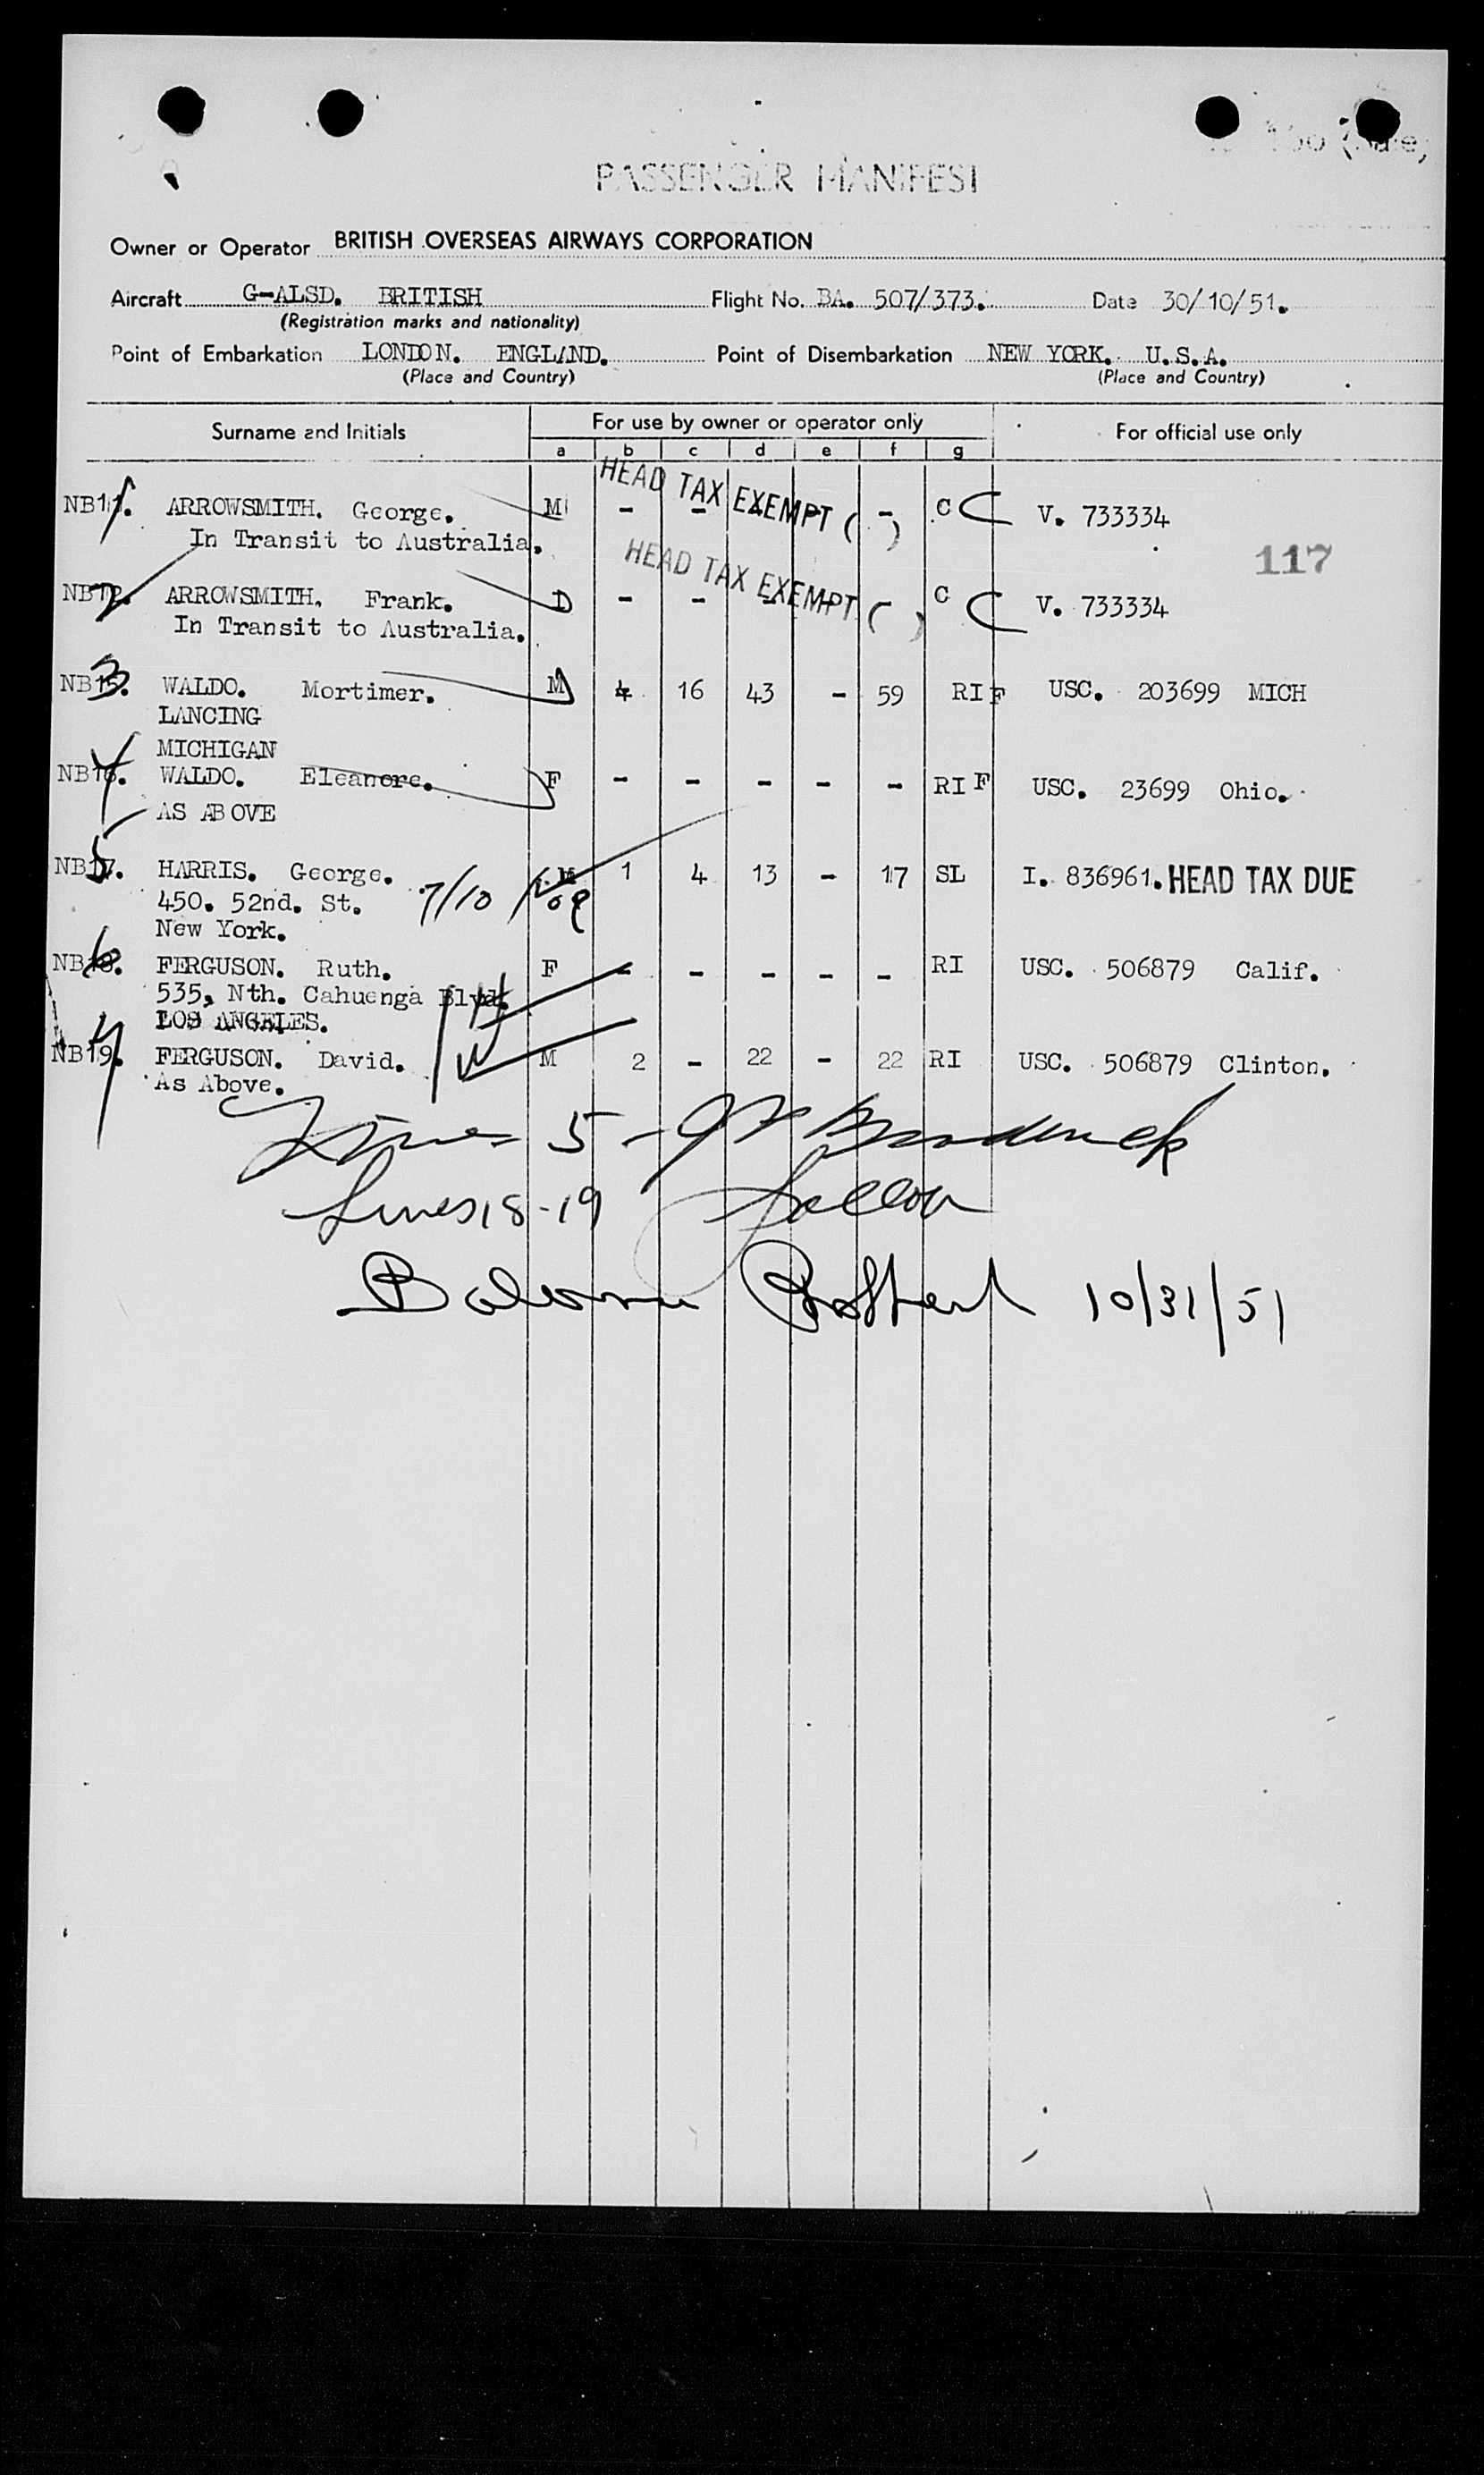 PASSENGER MANIFEST
Owner or Operator BRITISH OVERSEAS AIRWAYS CORPORATION
Aircraft G-ALSD. BRITISH Flight No. BA. 507/373. Date 30/10/51.
(Registration marks and nationality)
Point of Embarkation LONDON. ENGLAND. Point of Disembarkation NEW YORK. U.S.A.
(Place and Country) (Place and Country)
Surname and Initials For use by owner or operator only For official use only
a b c d e f g
HEAD TAX EXEMPT ( )
NB11. ARROWSMITH. George. M - - - - - C V. 733334
In Transit to Australia.
117
HEAD TAX EXEMPT ( )
NB12. ARROWSMITH. Frank. D - - - - - C V. 733334
In Transit to Australia.
NB15. WALDO. Mortimer. M 4 16 43 - 59 RI F USC. 203699 MICH
LANCING
MICHIGAN
NB16. WALDO. Eleanore. F - - - - - RI F USC. 23699 Ohio.
AS ABOVE
NB17. HARRIS. George. M 1 4 13 - 17 SL I. 836961. HEAD TAX DUE
450. 52nd. St. 7/10
New York.
NB18. FERGUSON. Ruth. F - - - - - RI USC. 506879 Calif.
535, Nth. Cahuenga Blvd.
LOS ANGELES.
NB19. FERGUSON. David. M 2 - 22 - 22 RI USC. 506879 Clinton.
As Above.
5 -
Lines 18-19
10/31/51